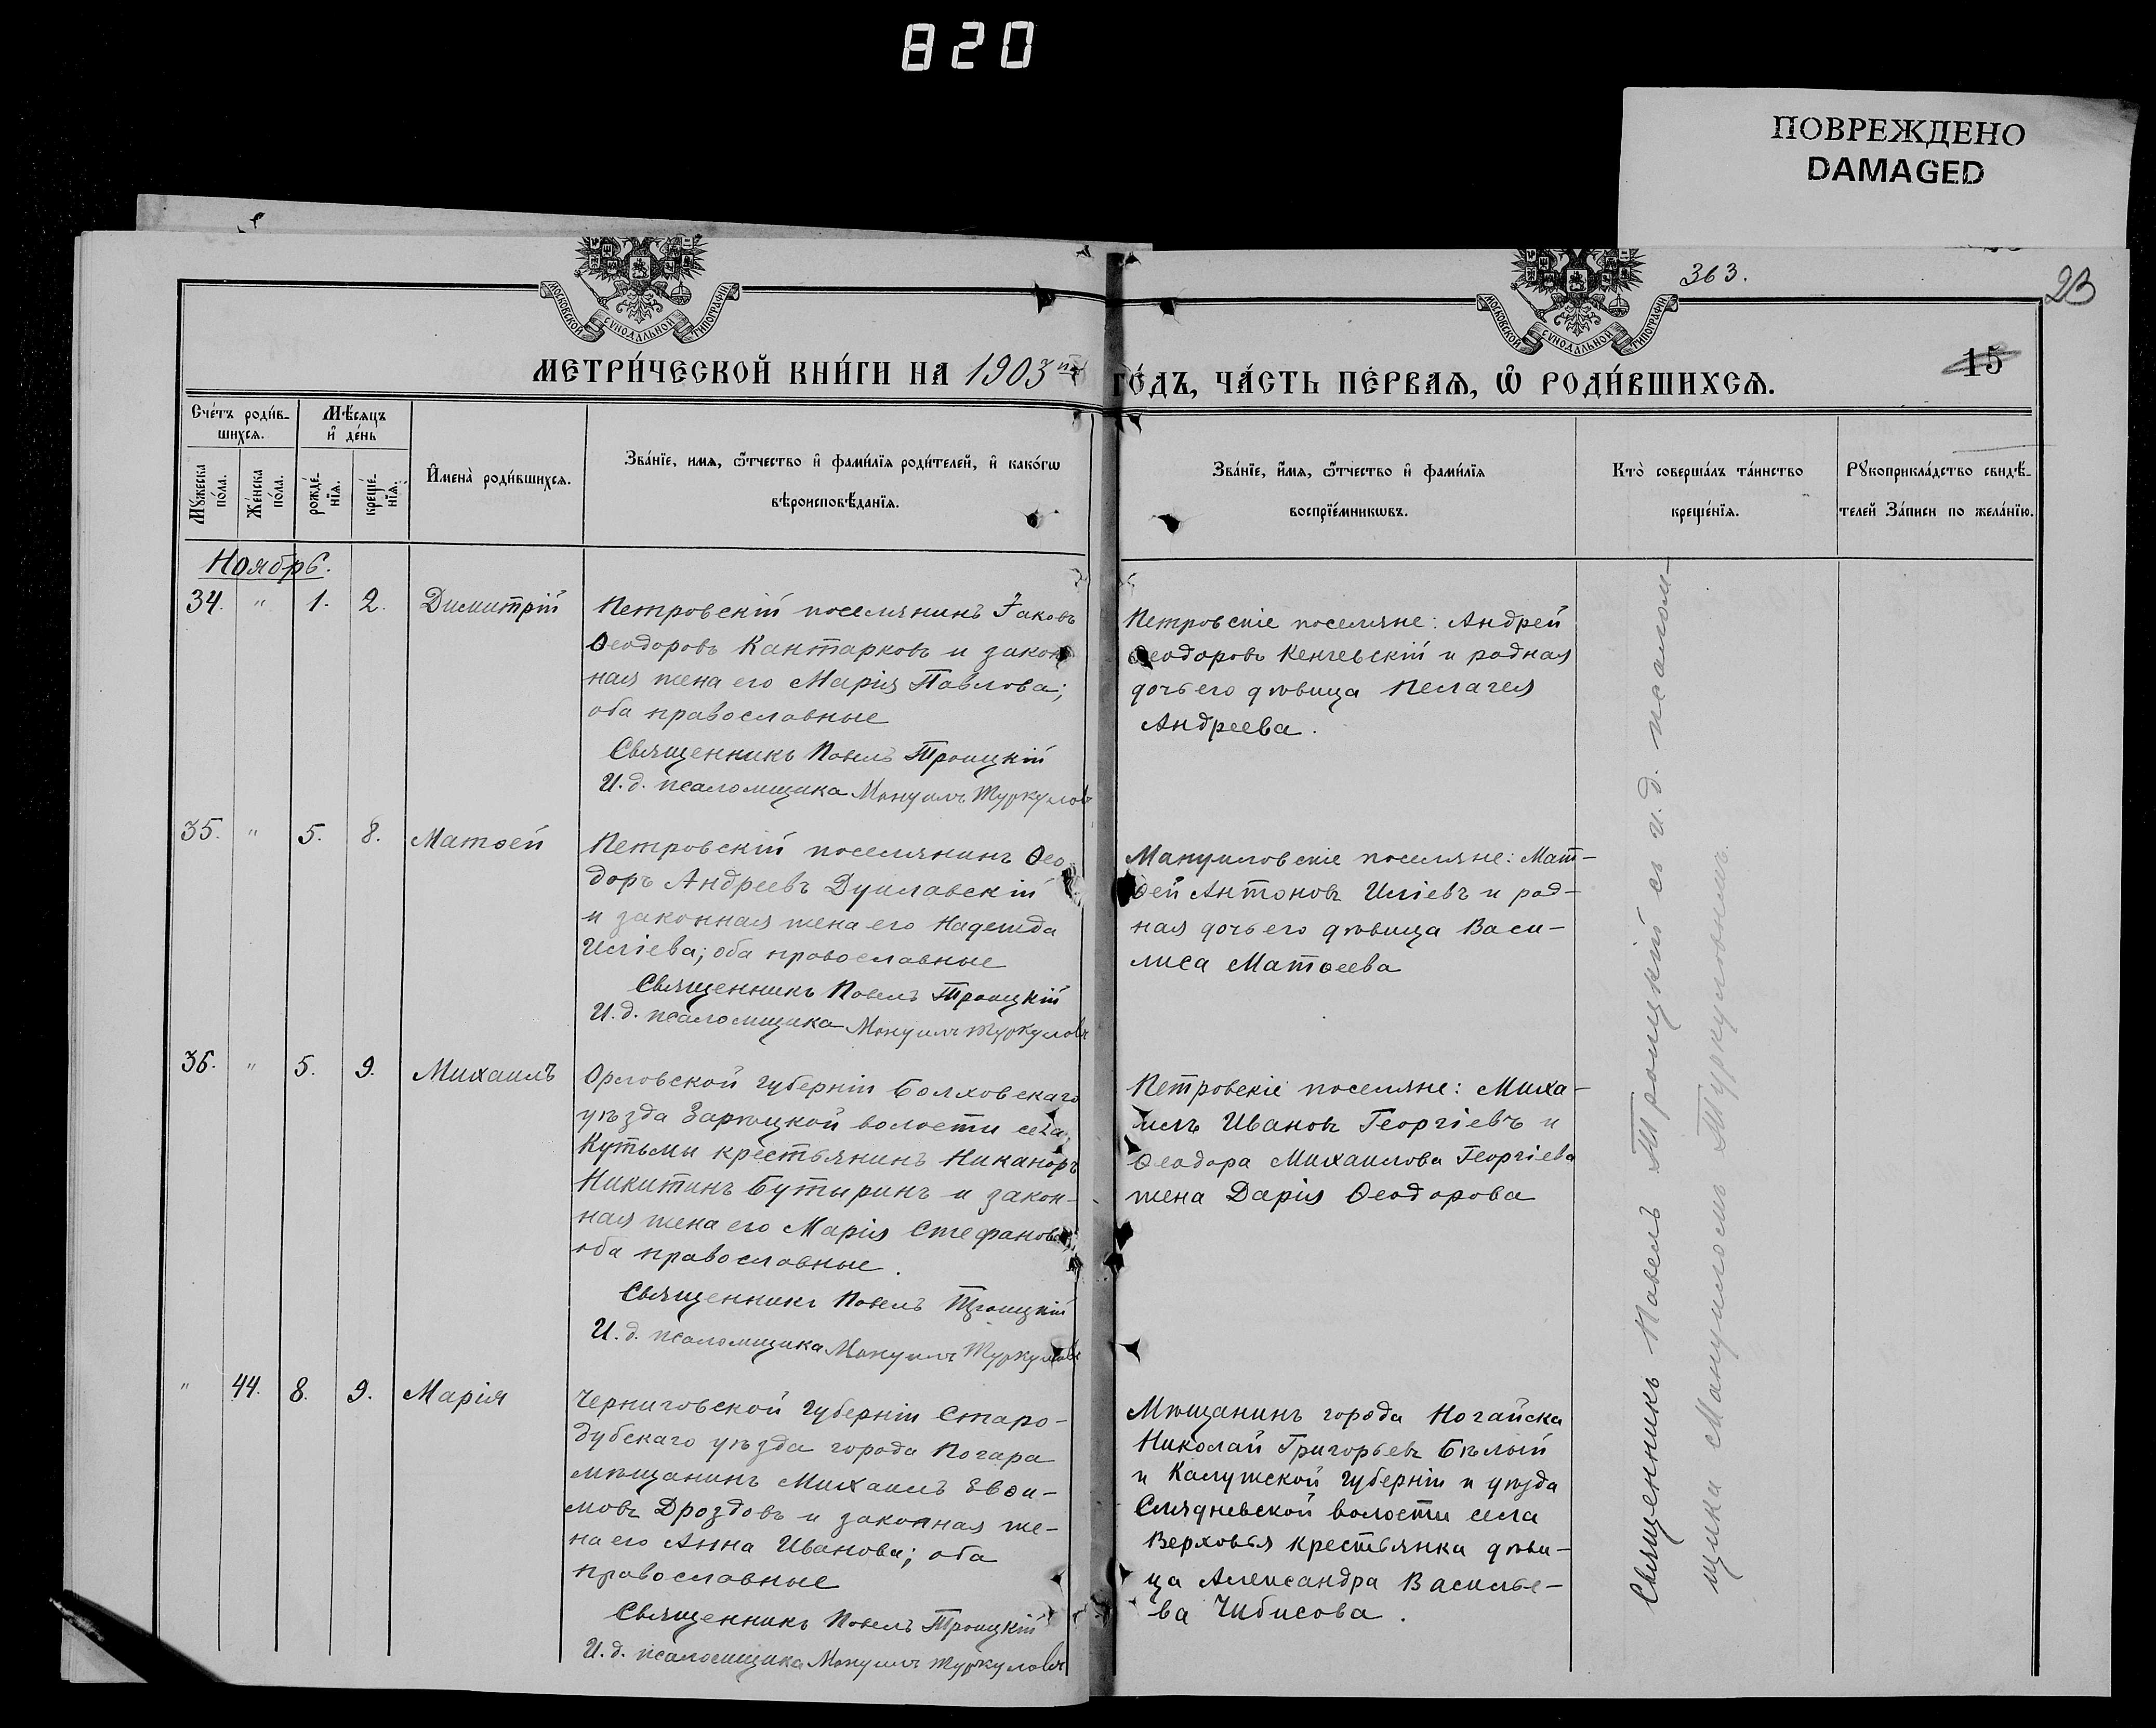 820
ПОВРЕЖДЕНО
DAMAGED
МОСКОВСКОЙ СѴНОДАЛЬНОЙ ТИПОГРАФІИ
МОСКОВСКОЙ СѴНОДАЛЬНОЙ ТИПОГРАФІИ
363.
23
15
МЕТРИ́ЧЕСКОЙ КНИ́ГИ НА 1903 ГО́ДЪ, ЧА́СТЬ ПЕ́РВАЯ, Ѡ РОДИ́ВШИХСЯ.
Сче́тъ роди́в-
шихся.
Мѣ́сяцъ
и҆ де́нь
Мꙋ́жеска
по́ла.
Же́нска
по́ла.
рожде́-
нїя.
креще́-
нїя.
И҆мена̀ роди́вшихся.
Зва́нїе, имя, ѻ҆́тчество и҆ фами́лїя роди́телей, и҆ како́гѡ
вѣроисповѣ́данїя.
Зва́нїе, и҆́мя, ѻ҆́тчество и҆ фами́лїя
воспрїе́мникѡвъ.
Кто̀ соверша́лъ та́инство
креще́нїя.
Рꙋкоприкла́дство свидѣ́-
телей За́писи по жела́нїю.
Ноябрь.
34. " 1. 2. Димитрій
Петровскій поселянинъ Іаковъ
Ѳеодоровъ Кантарковъ и закон
ная жена его Марія Павлова;
оба православные
Священникъ Павелъ Троицкій
И. д. псаломщика Мануилъ Туркуловъ
Петровскіе поселяне: Андрей
Ѳеодоровъ Кенчевскій и родная
дочь его дѣвица Пелагея
Андреева.
35. " 5. 8. Матѳей
Петровскій поселянинъ Ѳео-
доръ Андреевъ Дуплавскій
и законная жена его Надежда
Иліева; оба православные
Священникъ Павелъ Троицкій
И. д. псаломщика Мануилъ Туркуловъ
Мануиловскіе поселяне: Мат-
ѳей Антоновъ Иліевъ и род-
ная дочь его дѣвица Васи-
лиса Матѳеева
36. " 5. 9. Михаилъ
Орловской губерніи Болховскаго
уѣзда Зарѣцкой волости села
Кутьмы крестьянинъ Никаноръ
Никитинъ Бутыринъ и закон-
ная жена его Марія Стефанова
оба православные.
Священникъ Павелъ Троицкій
И. д. псаломщика Мануилъ Туркуловъ
Петровскіе поселяне: Миха-
илъ Ивановъ Георгіевъ и
Ѳеодора Михаилова Георгіева
жена Дарія Ѳеодорова
" 44. 8. 9. Марія
Черниговской губерніи Старо-
дубскаго уѣзда города Погара
мѣщанинъ Михаилъ Евѳи-
мовъ Дроздовъ и законная же-
на его Анна Иванова; оба
православные
Священникъ Павелъ Троицкій
И. д. псаломщика Мануилъ Туркуловъ
Мѣщанинъ города Ногайска
Николай Григорьевъ Бѣлый
и Калужской губерніи и уѣзда
волости села
Верховья крестьянка дѣви-
ца Александра Василье-
ва Чибисова.
Священникъ Павелъ Троицкій съ и. д. псалом-
щика Мануиломъ Туркуловымъ.